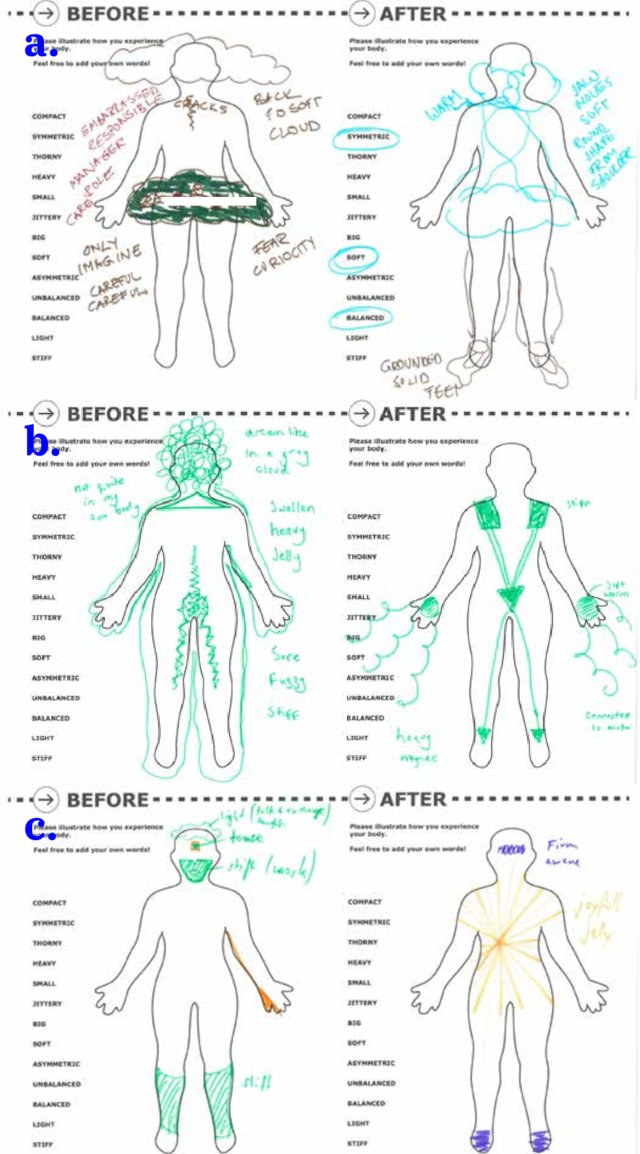 a.
BEFORE
Please illustrate how you experience
your body.
Feel free to add your own words!
COMPACT
SYMMETRIC
THORNY
HEAVY
SMALL
JITTERY
BIG
SOFT
ASYMMETRIC
UNBALANCED
BALANCED
LIGHT
STIFF
EMBARRASSED
RESPONSIBLE
MANAGER
ROLE
CARE
CRACKS
BACK
TO SOFT
CLOUD
ONLY
IMAGINE
CAREFUL
CAREFUL
FEAR
CURIOCITY
AFTER
Please illustrate how you experience
your body.
Feel free to add your own words!
COMPACT
SYMMETRIC
THORNY
HEAVY
SMALL
JITTERY
BIG
SOFT
ASYMMETRIC
UNBALANCED
BALANCED
LIGHT
STIFF
WARM
JAW
MOVES
SOFT
ROUND
SHAPE
FROM
SHOULDER
GROUNDED
SOLID
FEET
b.
BEFORE
Please illustrate how you experience
your body.
Feel free to add your own words!
COMPACT
SYMMETRIC
THORNY
HEAVY
SMALL
JITTERY
BIG
SOFT
ASYMMETRIC
UNBALANCED
BALANCED
LIGHT
STIFF
dream like
in a grey
cloud
not quite
in my
own body
Swollen
heavy
Jelly
Sore
Fuzzy
Stiff
AFTER
Please illustrate how you experience
your body.
Feel free to add your own words!
COMPACT
SYMMETRIC
THORNY
HEAVY
SMALL
JITTERY
BIG
SOFT
ASYMMETRIC
UNBALANCED
BALANCED
LIGHT
STIFF
stiff
soft
warm
connected
to
heavy
c.
BEFORE
Please illustrate how you experience
your body.
Feel free to add your own words!
COMPACT
SYMMETRIC
THORNY
HEAVY
SMALL
JITTERY
BIG
SOFT
ASYMMETRIC
UNBALANCED
BALANCED
LIGHT
STIFF
light
tense
stiff (mask)
stiff
AFTER
Please illustrate how you experience
your body.
Feel free to add your own words!
COMPACT
SYMMETRIC
THORNY
HEAVY
SMALL
JITTERY
BIG
SOFT
ASYMMETRIC
UNBALANCED
BALANCED
LIGHT
STIFF
Firm
aware
joyfull
jelly